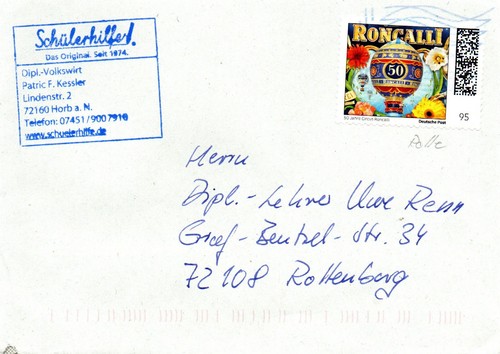 Schülerhilfe!
Das Original. Seit 1974.
Dipl.-Volkswirt
Patric F. Kessler
Lindenstr. 2
72160 Horb a. N.
Telefon: 07451/9007910
www.schuelerhilfe.de
RONCALLI
50
50 Jahre Circus Roncalli
Deutsche Post
95
Herrn
Dipl.-Lehrer Uwe Renn
Graf-Bentzel-Str. 34
72108 Rottenberg